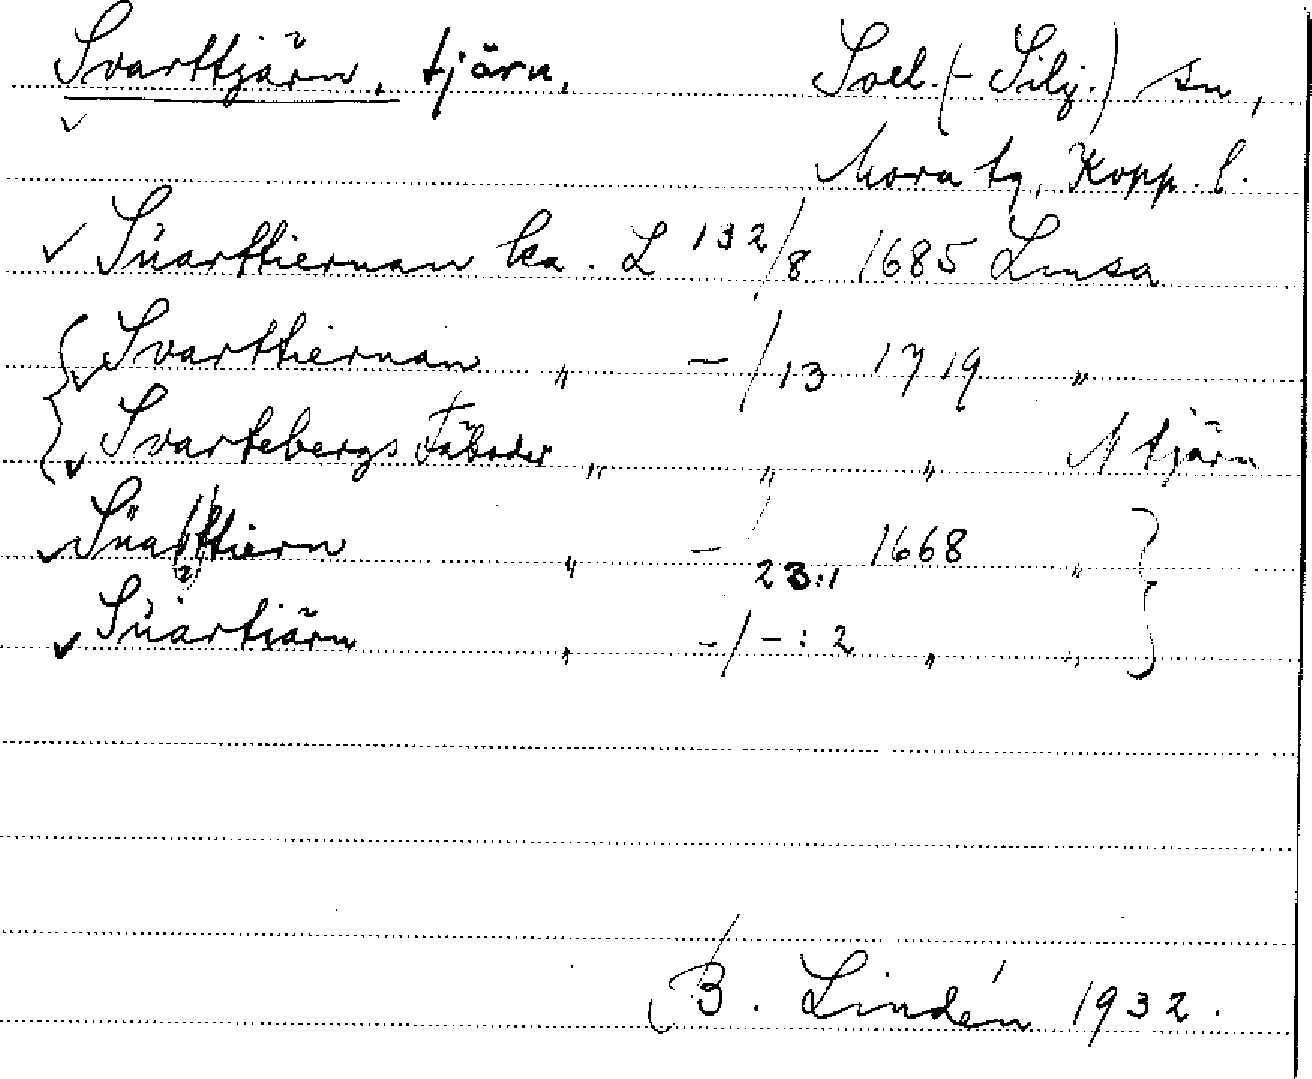 Svarttjärn, tjärn. Soll.(- Silj.) sn,
Mora tg, Kopp. l.
Súarttiernan ka. L 132/8 1685 Lmsa
Svarttiernan " -/13 1719 "
Svartebergs Fäboder " " " N tjärn
Süarttiern " - 23:1 1668 "
Súartiärn " -/- : 2 " "
B. Lindén 1932.